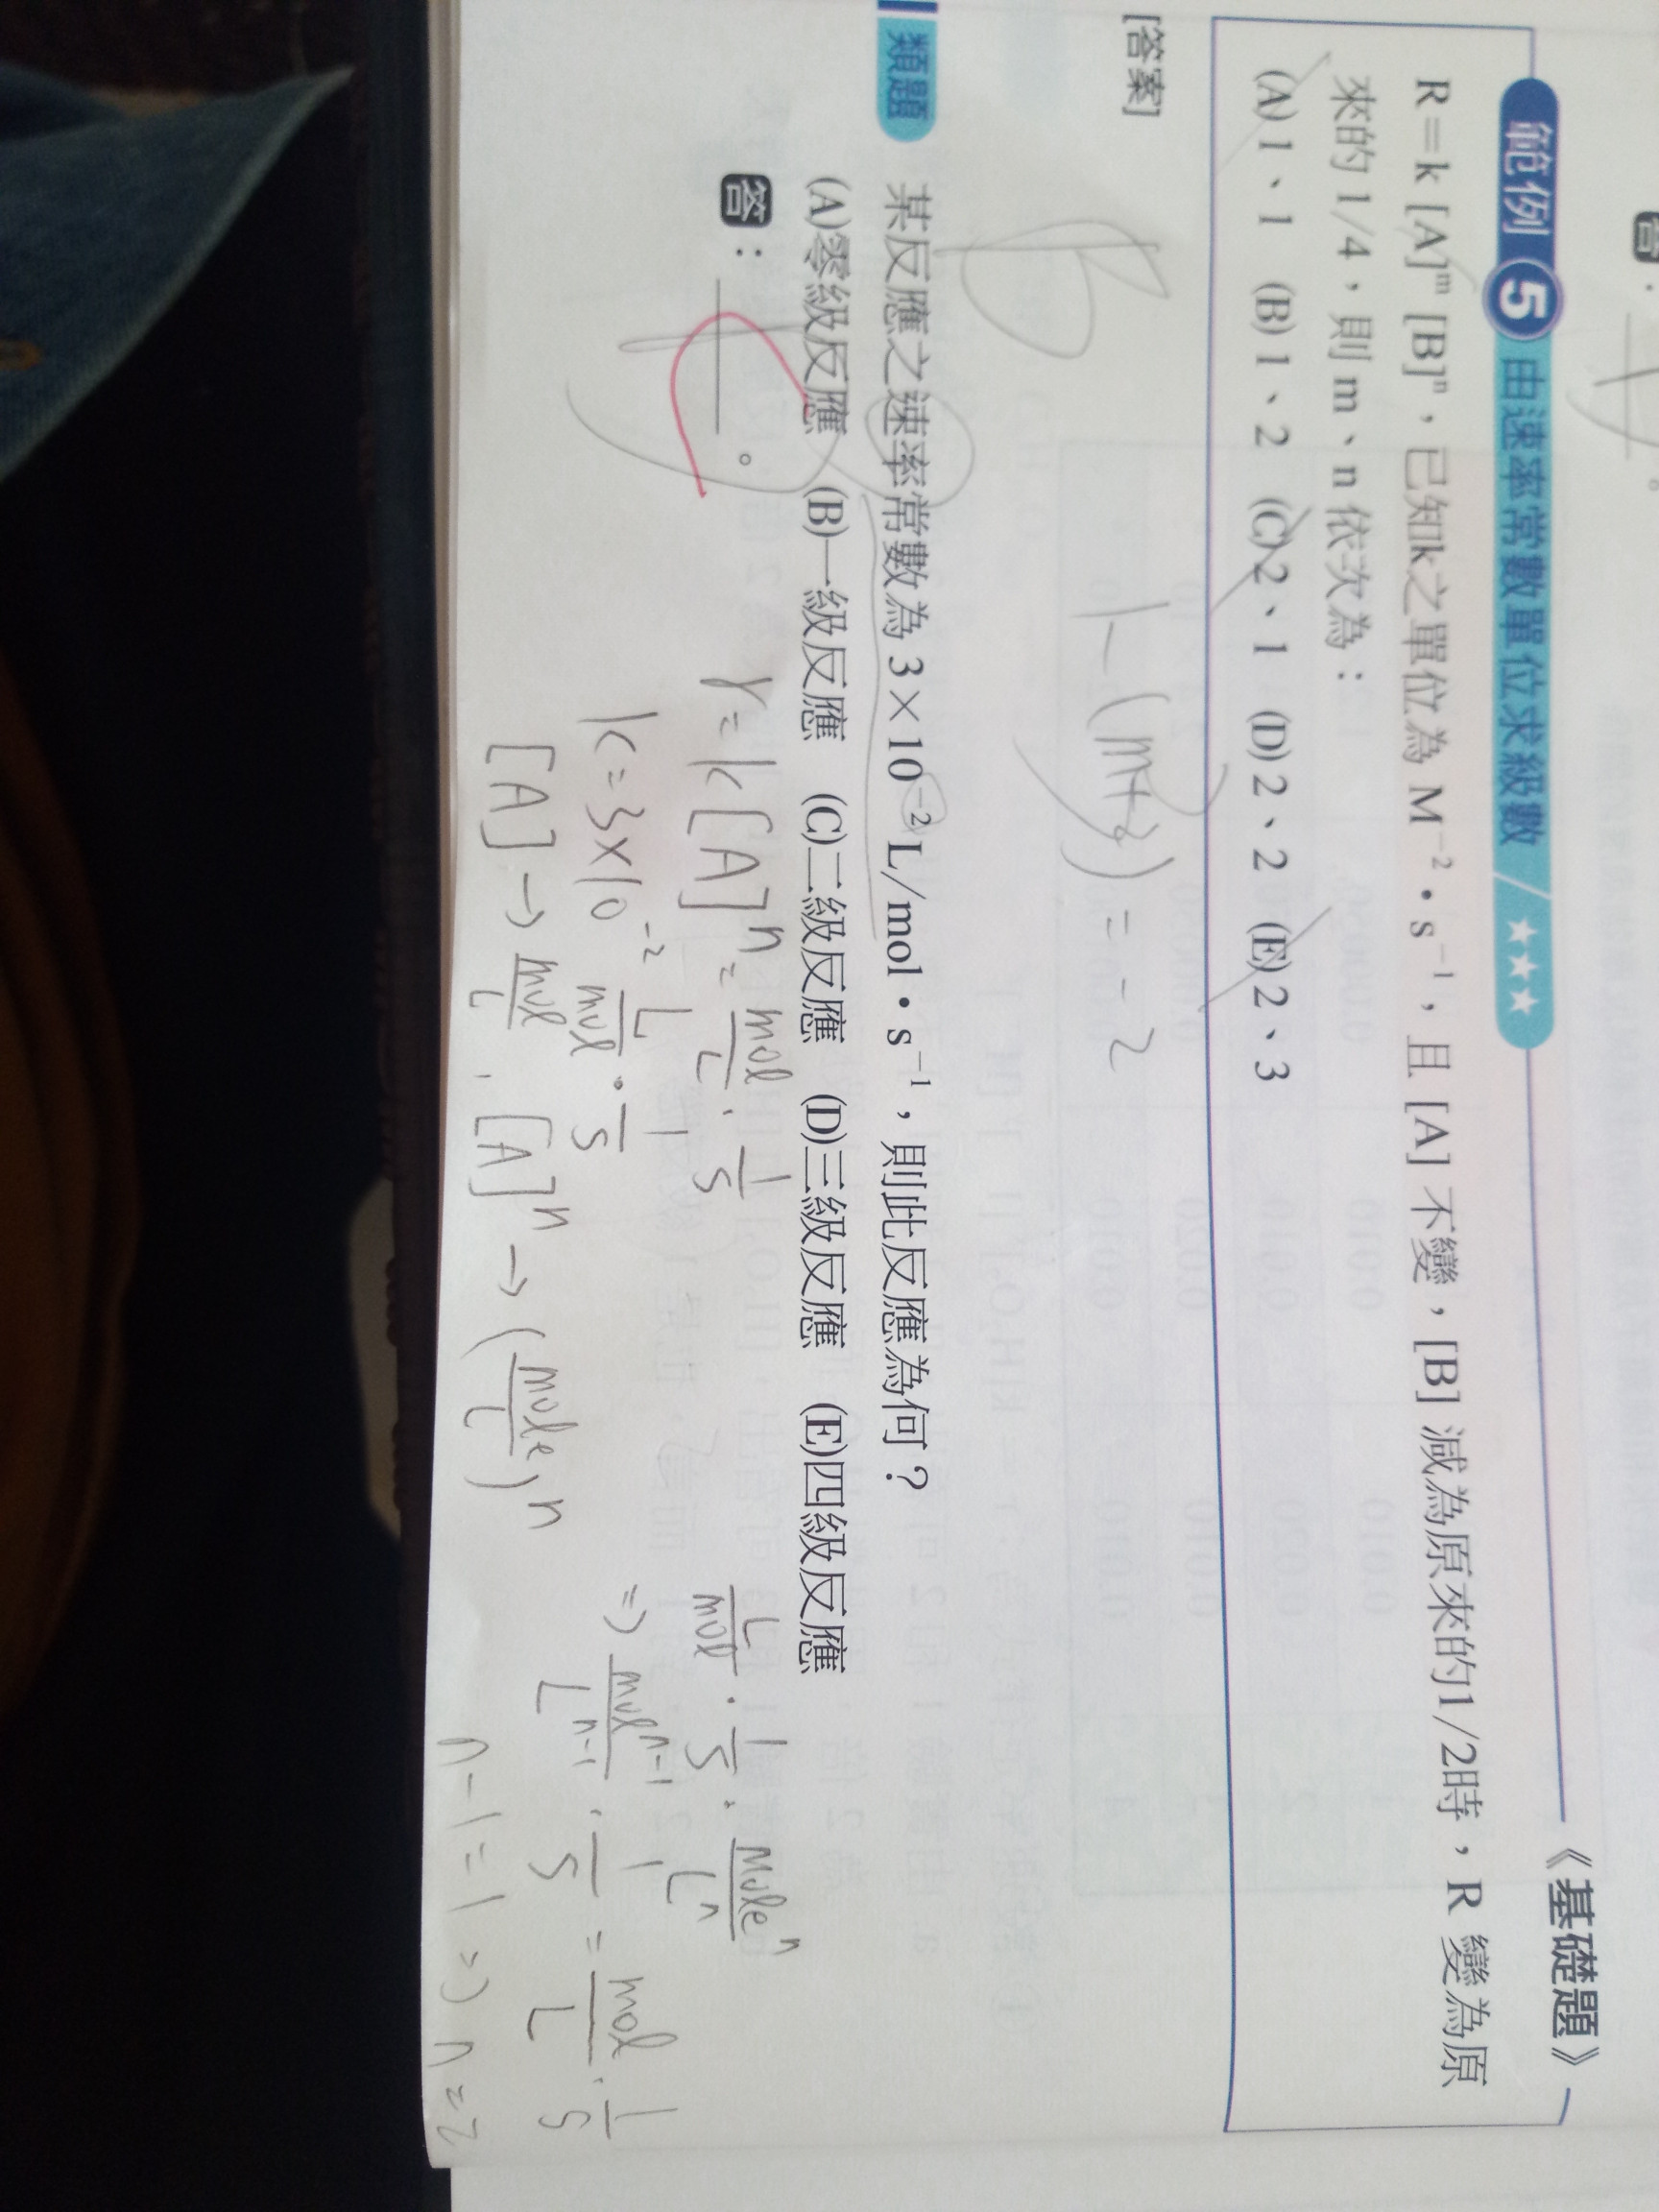 答：
範例 5 由速率常數單位求級數 ★★★ 《基礎題》
R＝k [A]ᵐ [B]ⁿ，已知k之單位為 M⁻²・s⁻¹，且 [A] 不變，[B] 減為原來的1/2時，R 變為原
來的 1/4，則 m、n 依次為：
(A) 1、1 (B) 1、2 (C) 2、1 (D) 2、2 (E) 2、3
[答案]
B
1-(m+2) = -2
類題 某反應之速率常數為 3×10⁻² L/mol・s⁻¹，則此反應為何？
(A)零級反應 (B)一級反應 (C)二級反應 (D)三級反應 (E)四級反應
答：。
r = k[A]ⁿ = mol/L · 1/s
k = 3×10⁻² L/mol · 1/s
[A] → mol/L , [A]ⁿ → (mole/L)ⁿ
L/mol · 1/s · moleⁿ/Lⁿ
⇒ molⁿ⁻¹/Lⁿ⁻¹ · 1/s = mol/L · 1/s
n-1=1 ⇒ n=2